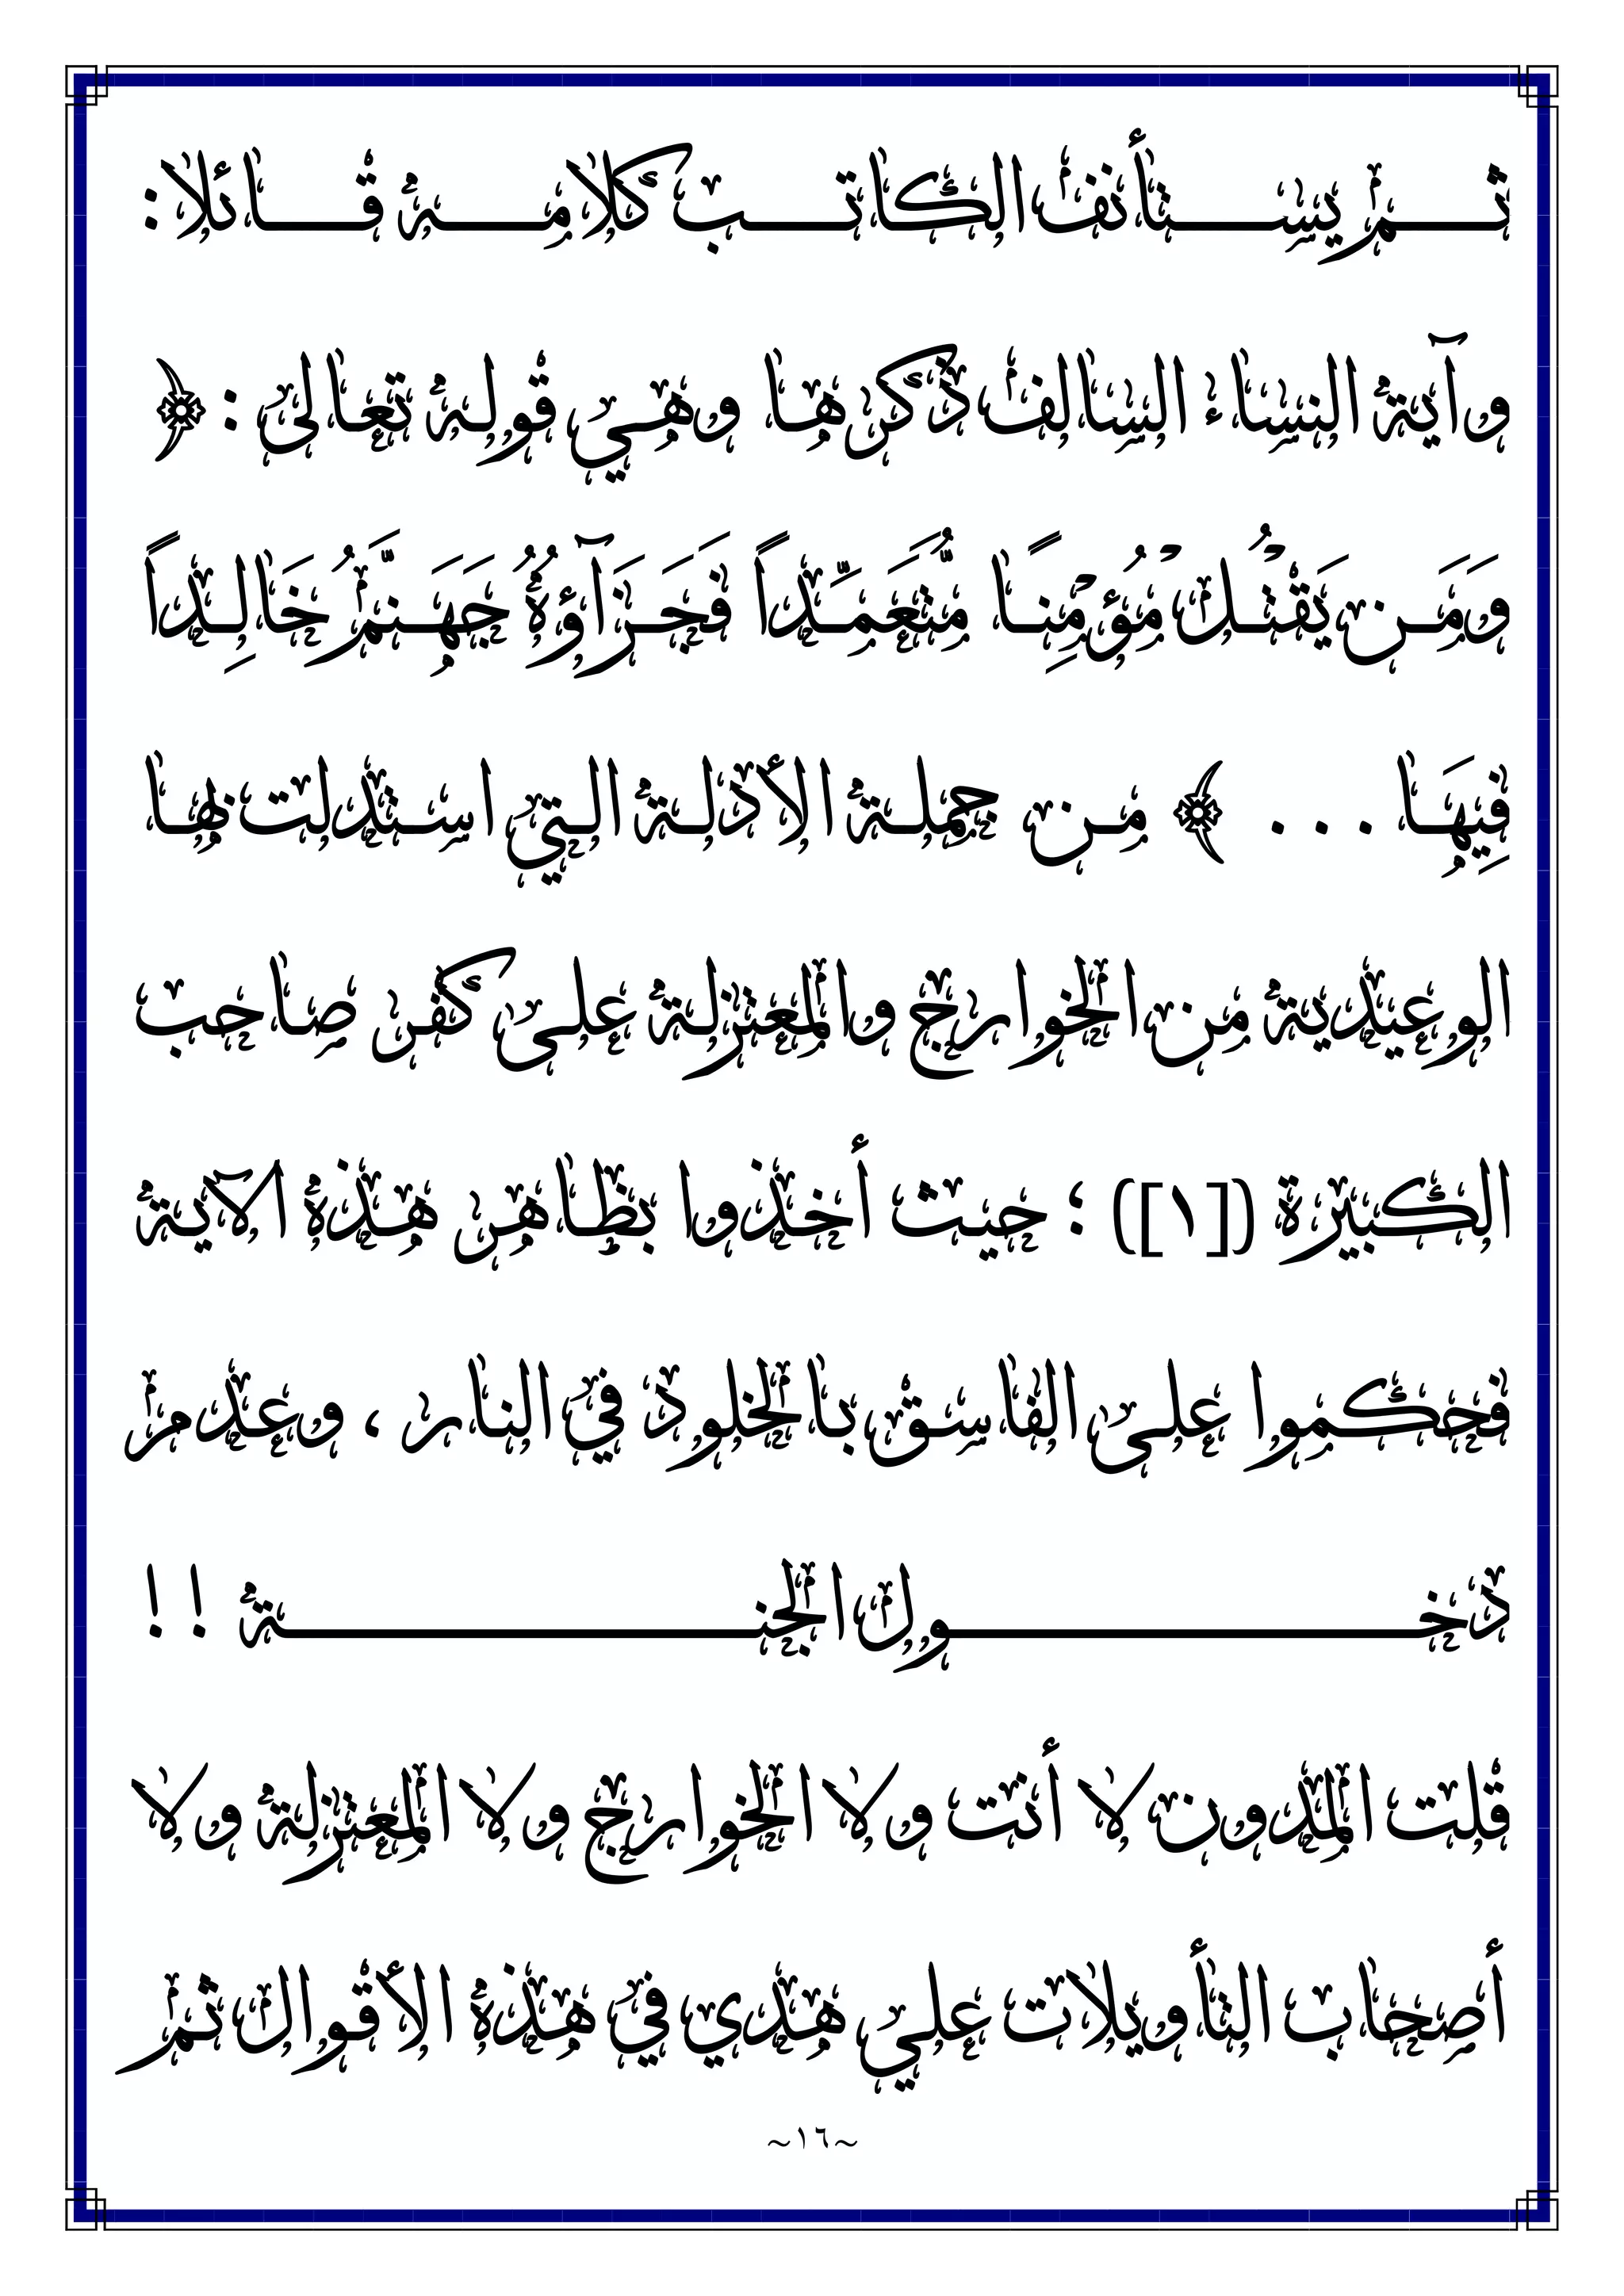 ثم يستأنف الكاتب كلامه قائلا :
وآية النساء السالف ذكرها وهي قوله تعالى : ﴿
وَمَن يَقْتُلْ مُؤْمِنًا مُّتَعَمِّداً فَجَزَآؤُهُ جَهَنَّمُ خَالِداً
فِيهَا . . . ﴾ من جملة الأدلة التي استدلت بها
الوعيدية من الخوارج والمعتزلة على كفر صاحب
الكبيرة ([١]) ؛ حيث أخذوا بظاهر هذه الآية
فحكموا على الفاسق بالخلود في النار ، وعدم
دخول الجنة ! !
قلت المدون لا أنت ولا الخوارج ولا المعتزلة ولا
أصحاب التأويلات علي هدي في هذه الأقوال ثم
~١٦~